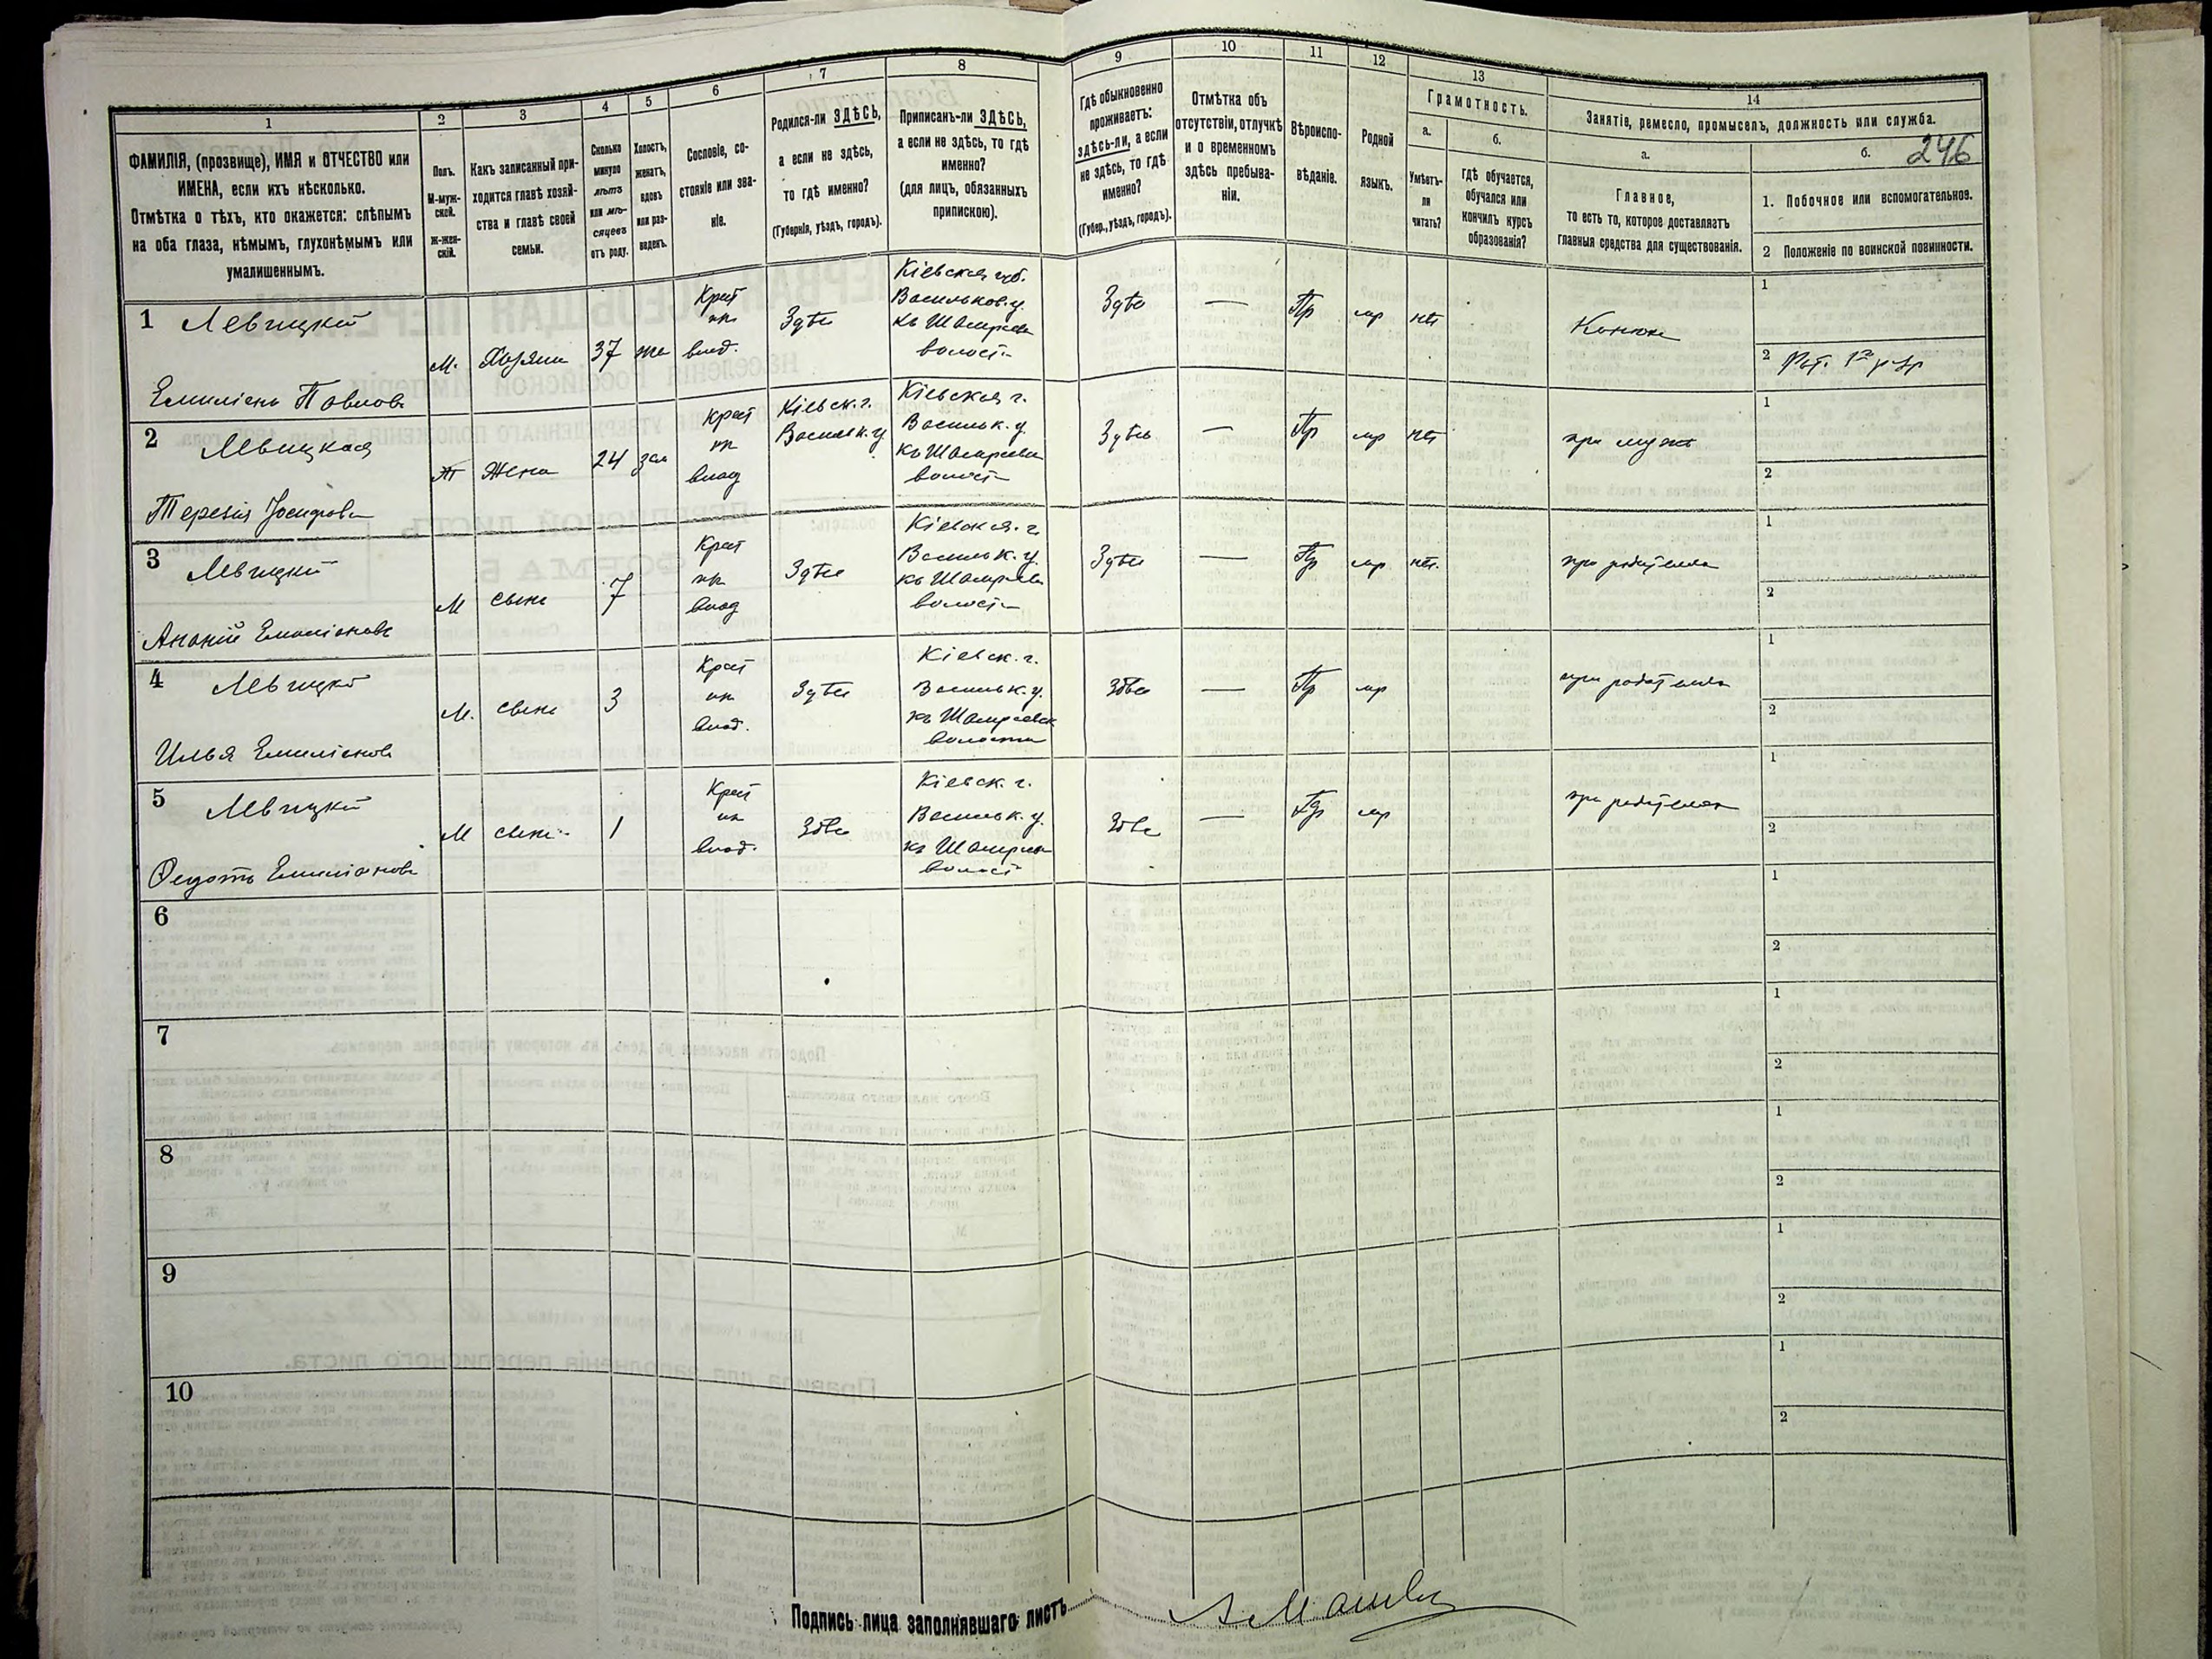 1
2
3
4
5
6
7
8
9
10
11
12
13
14
ФАМИЛІЯ, (прозвище), ИМЯ и ОТЧЕСТВО или
ИМЕНА, если ихъ нѣсколько.
Отмѣтка о тѣхъ, кто окажется: слѣпымъ
на оба глаза, нѣмымъ, глухонѣмымъ или
умалишеннымъ.
Полъ.
М-муж-
ской.
Ж-жен-
скій.
Какъ записанный при-
ходится главѣ хозяй-
ства и главѣ своей
семьи.
Сколько
минуло
лѣтъ
или мѣ-
сяцевъ
отъ роду.
Холостъ,
женатъ,
вдовъ
или раз-
веденъ.
Сословіе, со-
стояніе или зва-
ніе.
Родился-ли ЗДѢСЬ,
а если не здѣсь,
то гдѣ именно?
(Губернія, уѣздъ, городъ).
Приписанъ-ли ЗДѢСЬ,
а если не здѣсь, то гдѣ
именно?
(для лицъ, обязанныхъ
припискою).
Гдѣ обыкновенно
проживаетъ:
здѣсь-ли, а если
не здѣсь, то гдѣ
именно?
(Губер., уѣздъ, городъ).
Отмѣтка объ
отсутствіи, отлучкѣ
и о временномъ
здѣсь пребыва-
ніи.
Вѣроиспо-
вѣданіе.
Родной
языкъ.
Грамотность.
а.
Умѣетъ-
ли
читать?
б.
гдѣ обучается,
обучался или
кончилъ курсъ
образованія?
Занятіе, ремесло, промыселъ, должность или служба.
а.
Главное,
то есть то, которое доставляетъ
главныя средства для существованія.
б. 246
1. Побочное или вспомогательное.
2 Положеніе по воинской повинности.
1 Левицкій
Емиліанъ Павловъ
М. Хозяинъ 37 же
Крест
из
влад.
Здѣсь
Кіевская губ.
Васильков. у.
волости
Здѣсь — Пр мр нѣт
Конюхъ
1
2
2 Левицкая
Терезія Іосифова
Ж Жена 24 зам
Крест
из
влад
Кіевск. г.
Васильк. у.
Кіевская г.
Васильк. у.
волости
Здѣсь — Пр мр нѣт
при мужѣ
1
2
3 Левицкій
Ананій Емиліановъ
М сынъ 7
Крест
из
влад
Здѣсь
Кіевская. г.
Васильк. у.
волости
Здѣсь — Пр мр нѣт.
при родителяхъ
1
2
4 Левицкій
Илья Емиліановъ
М. сынъ 3
Крест
из
влад.
Здѣсь
Кіевск. г.
Васильк. у.
волости
Здѣсь — Пр мр
при родителяхъ
1
2
5 Левицкій
Федотъ Емиліановъ
М сынъ 1
Крест
из
влад.
Здѣсь
Кіевск. г.
Васильк. у.
волост
Здѣсь — Пр мр
при родителях
1
2
6
1
2
7
1
2
8
1
2
9
1
2
10
1
2
Подпись лица заполнявшаго листъ